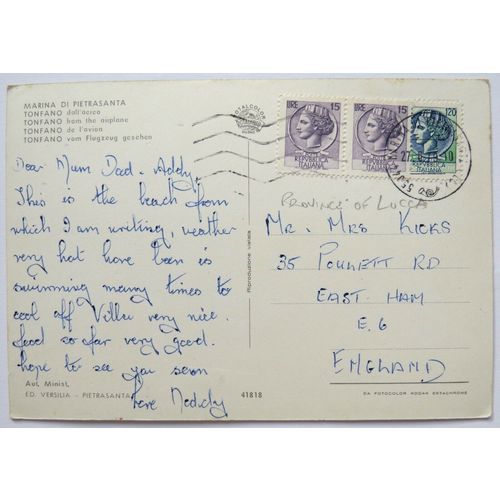 MARINA DI PIETRASANTA
TONFANO dall'aereo
TONFANO from the airplane
TONFANO de l'avion
TONFANO vom Flugzeug gesehen
Dear Mum Dad - Addy.
This is the beach from
which I am writing, weather
very hot have been is
swimming many times to
cool off Villa very nice.
food so far very good.
hope to see you soon
love
Aut. Minist.
ED. VERSILIA - PIETRASANTA
41818
Riproduzione vietata
LIRE 15
REPUBBLICA ITALIANA
LIRE 15
REPUBBLICA ITALIANA
20
REPUBBLICA ITALIANA
PROVINCE OF LUCCA
MR. MRS KICKS
35 POULETT RD
EAST. HAM
E.6
ENGLAND
DA FOTOCOLOR KODAK EKTACHROME